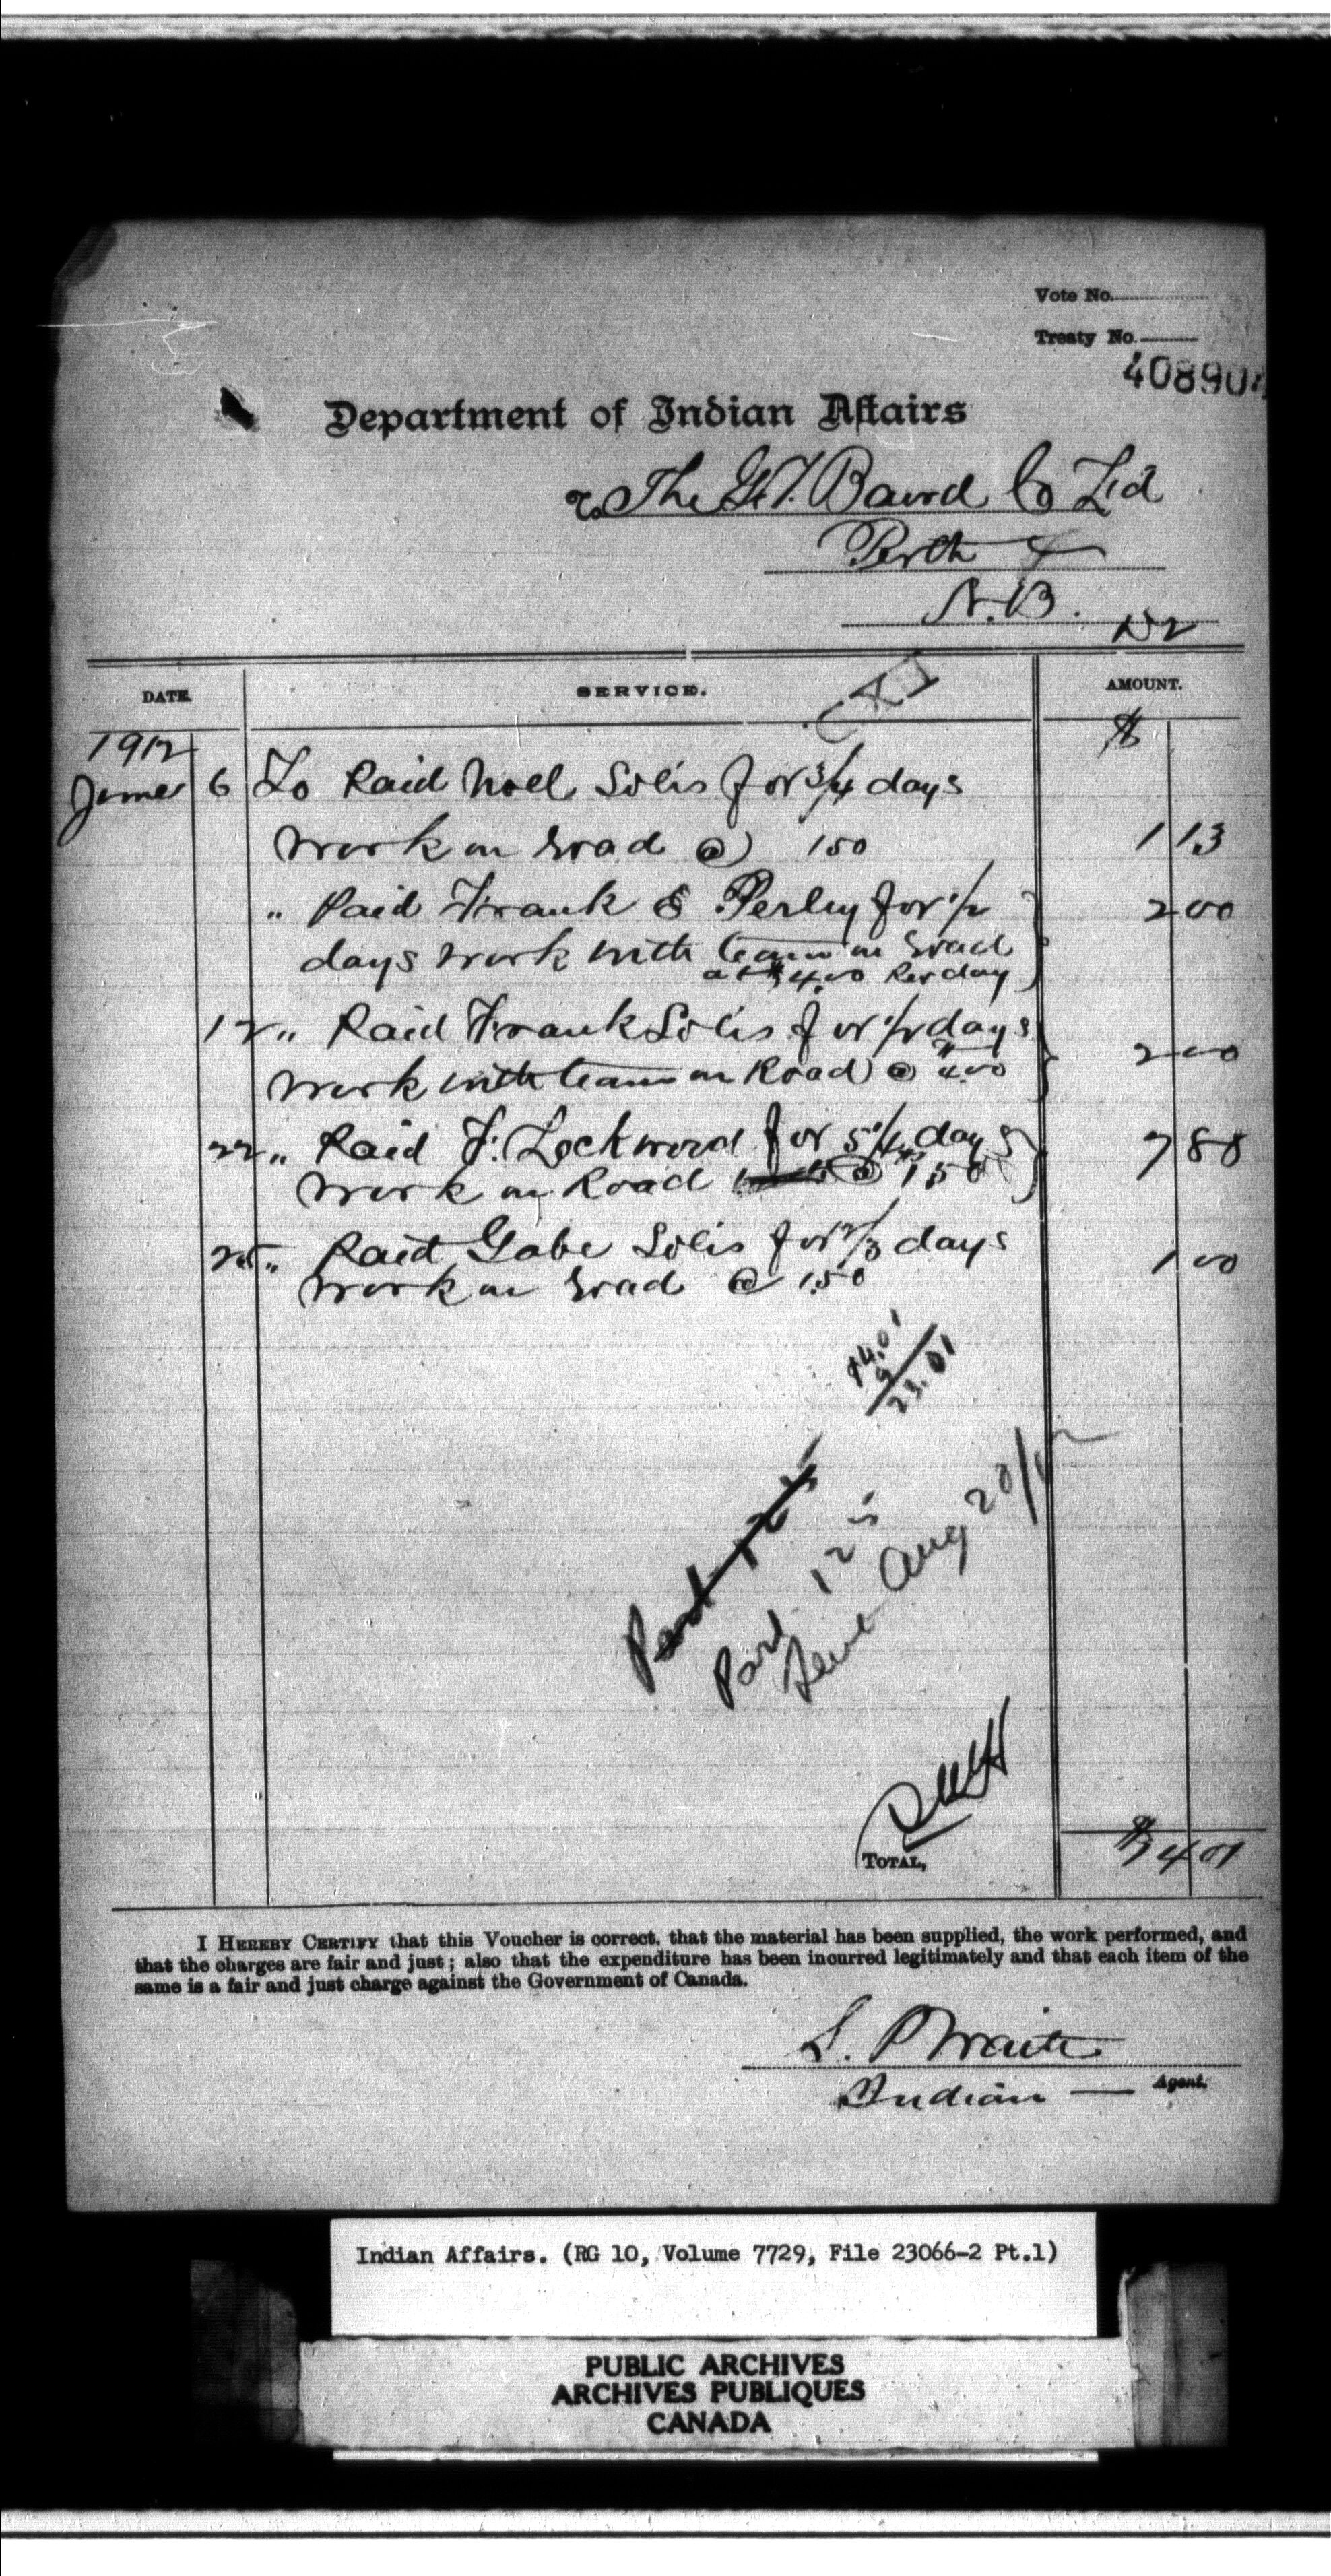 Vote No.
Treaty No.
408904
Department of Indian Affairs
To The G.T. Baird Co Ltd
Perth
N.B.
Dr
DATE. SERVICE. AMOUNT.
1912 $
June 6 To Paid Noel Solis for 3/4 days
work on road @ 150 1 13
" Paid Frank E Perley for 1/2 2 00
days work with team on road
at $4.00 Per day
12 " Paid Frank Solis for 1/2 days
work with team on Road @ $4.00 2 00
22 " Paid F. Lockwood for 5 1/4 days 7 88
work on Road @ $1.50
25 " Paid Gabe Solis for 2/3 days
work on road @ 1.50 1 00
14.01
9
23.01
Part 125
Part 125
Sent Aug 20/12
TOTAL, $14 01
I HEREBY CERTIFY that this Voucher is correct, that the material has been supplied, the work performed, and
that the charges are fair and just; also that the expenditure has been incurred legitimately and that each item of the
same is a fair and just charge against the Government of Canada.
S. P Waite
Indian — Agent.
Indian Affairs. (RG 10, Volume 7729, File 23066-2 Pt.1)
PUBLIC ARCHIVES
ARCHIVES PUBLIQUES
CANADA